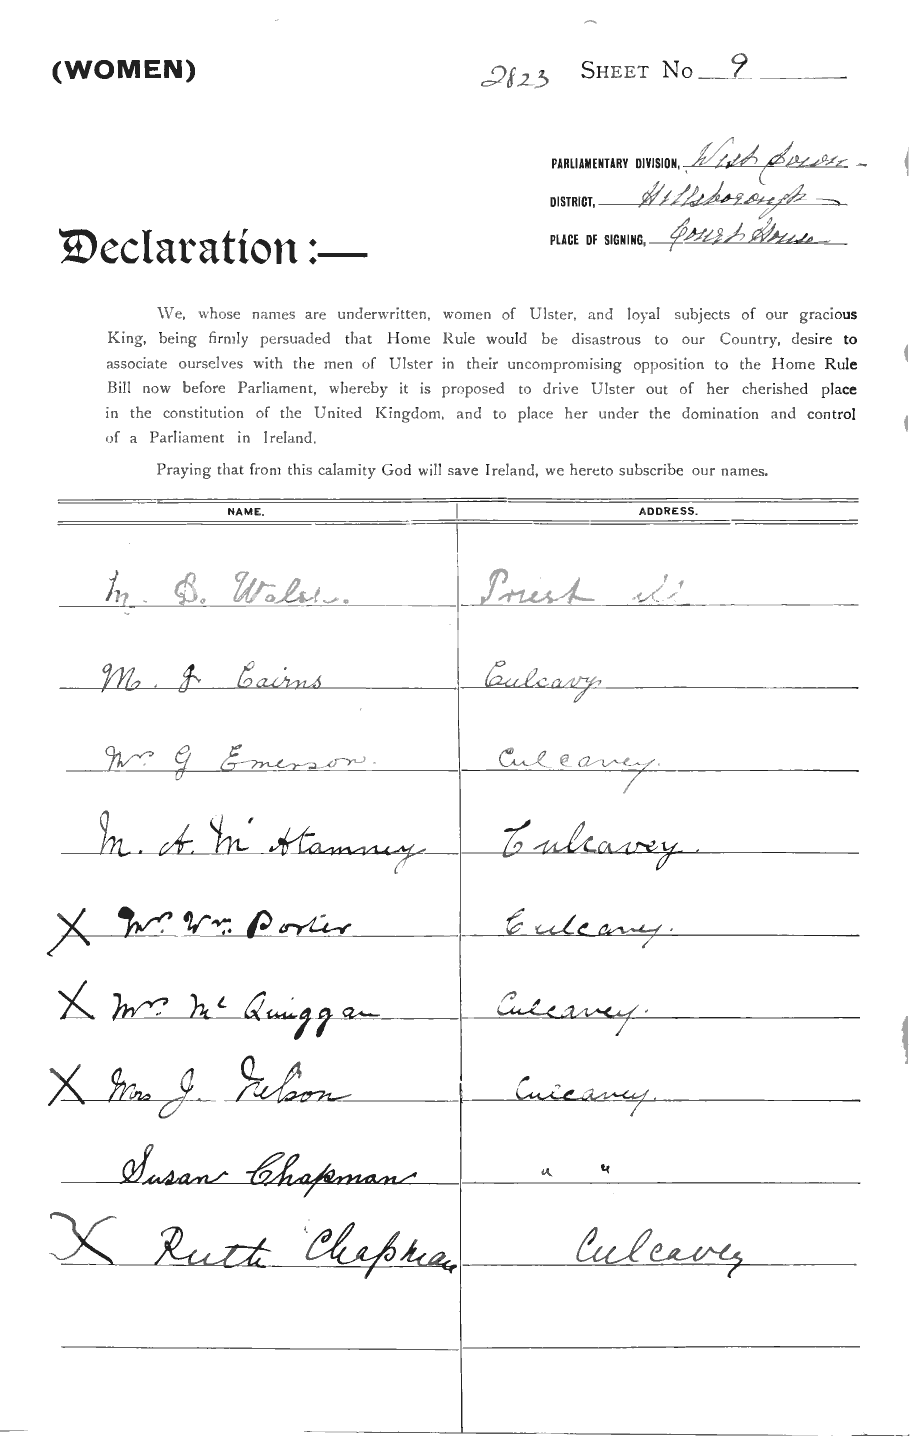 (WOMEN)
2823 SHEET No 9
PARLIAMENTARY DIVISION, West Down
DISTRICT, Hillsborough
PLACE OF SIGNING, Court House
Declaration :—
We, whose names are underwritten, women of Ulster, and loyal subjects of our gracious
King, being firmly persuaded that Home Rule would be disastrous to our Country, desire to
associate ourselves with the men of Ulster in their uncompromising opposition to the Home Rule
Bill now before Parliament, whereby it is proposed to drive Ulster out of her cherished place
in the constitution of the United Kingdom, and to place her under the domination and control
of a Parliament in Ireland.
Praying that from this calamity God will save Ireland, we hereto subscribe our names.
NAME. ADDRESS.
M. B. Priest
M. J Cairns Culcavy
Mrs G Emerson. Culcavey.
M. A. Mc Atamney Culcavey.
X Mrs. Wm. Porter Culcavey.
X Mrs. Mc Quiggan Culcavey.
X Mrs J. Nelson Culcavey.
Susan Chapman " "
X Ruth Chapman Culcavey